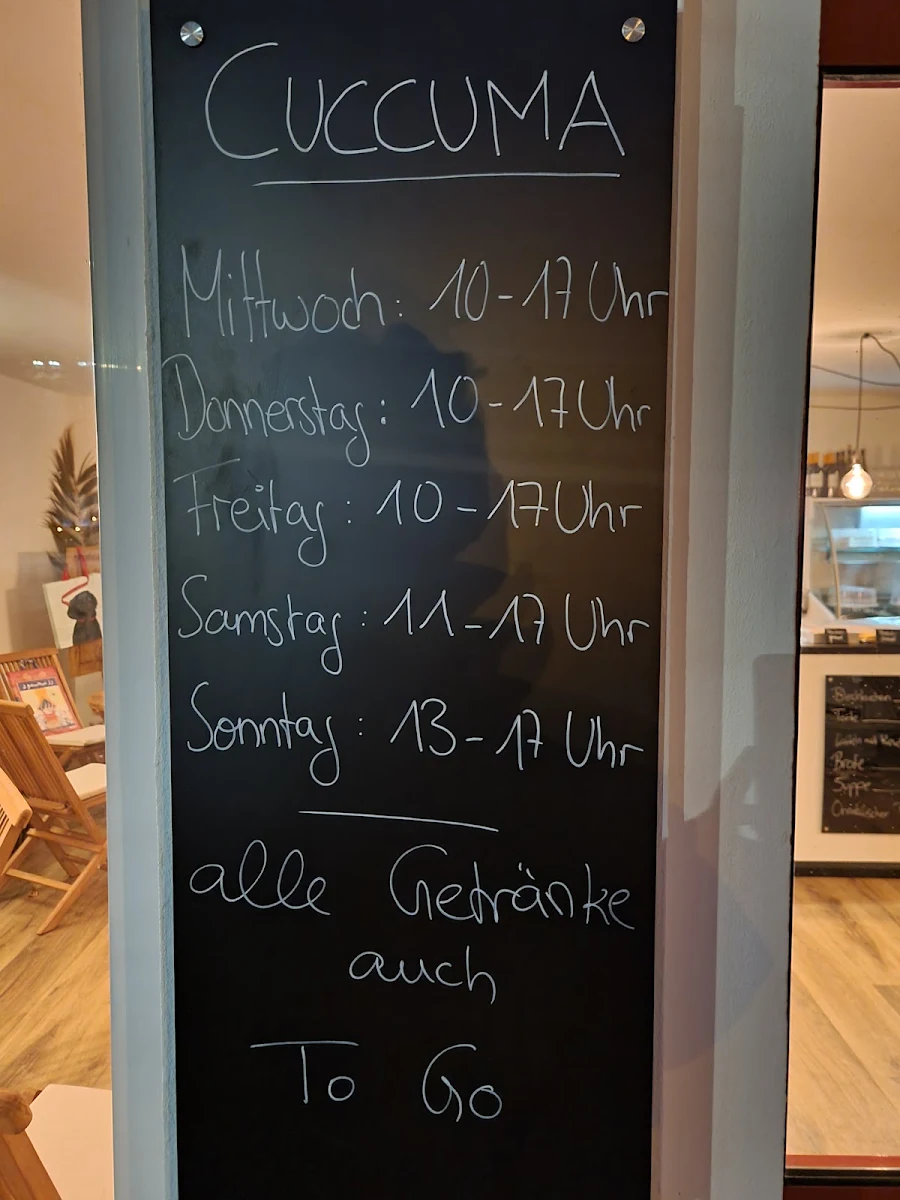 CUCCUMA
Mittwoch: 10-17 Uhr
Donnerstag: 10-17 Uhr
Freitag: 10-17 Uhr
Samstag: 11-17 Uhr
Sonntag: 13-17 Uhr
alle Getränke
auch
To Go
Brote
Suppe